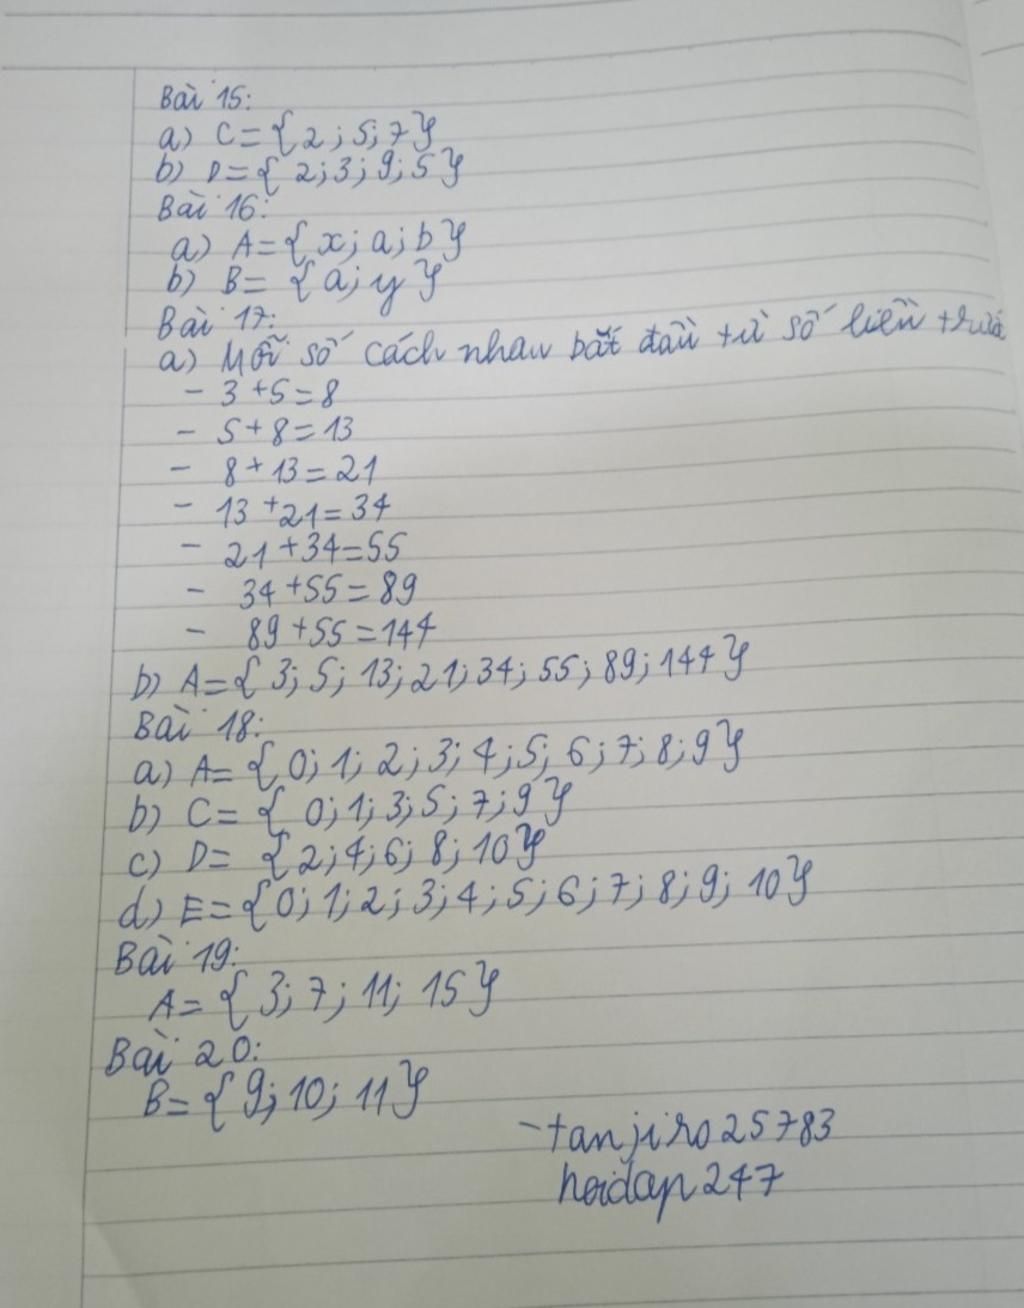 Bài 15:
a) C = { 2 ; 5 ; 7 }
b) D = { 2 ; 3 ; 9 ; 5 }
Bài 16:
a) A = { x ; a ; b }
b) B = { a ; y }
Bài 17:
a) Mỗi số cách nhau bắt đầu từ số liền trước
- 3 + 5 = 8
- 5 + 8 = 13
- 8 + 13 = 21
- 13 + 21 = 34
- 21 + 34 = 55
- 34 + 55 = 89
- 89 + 55 = 144
b) A = { 3 ; 5 ; 13 ; 21 ; 34 ; 55 ; 89 ; 144 }
Bài 18:
a) A = { 0 ; 1 ; 2 ; 3 ; 4 ; 5 ; 6 ; 7 ; 8 ; 9 }
b) C = { 0 ; 1 ; 3 ; 5 ; 7 ; 9 }
c) D = { 2 ; 4 ; 6 ; 8 ; 10 }
d) E = { 0 ; 1 ; 2 ; 3 ; 4 ; 5 ; 6 ; 7 ; 8 ; 9 ; 10 }
Bài 19:
A = { 3 ; 7 ; 11 ; 15 }
Bài 20:
B = { 9 ; 10 ; 11 }
- tanjiro25783
hoidap247